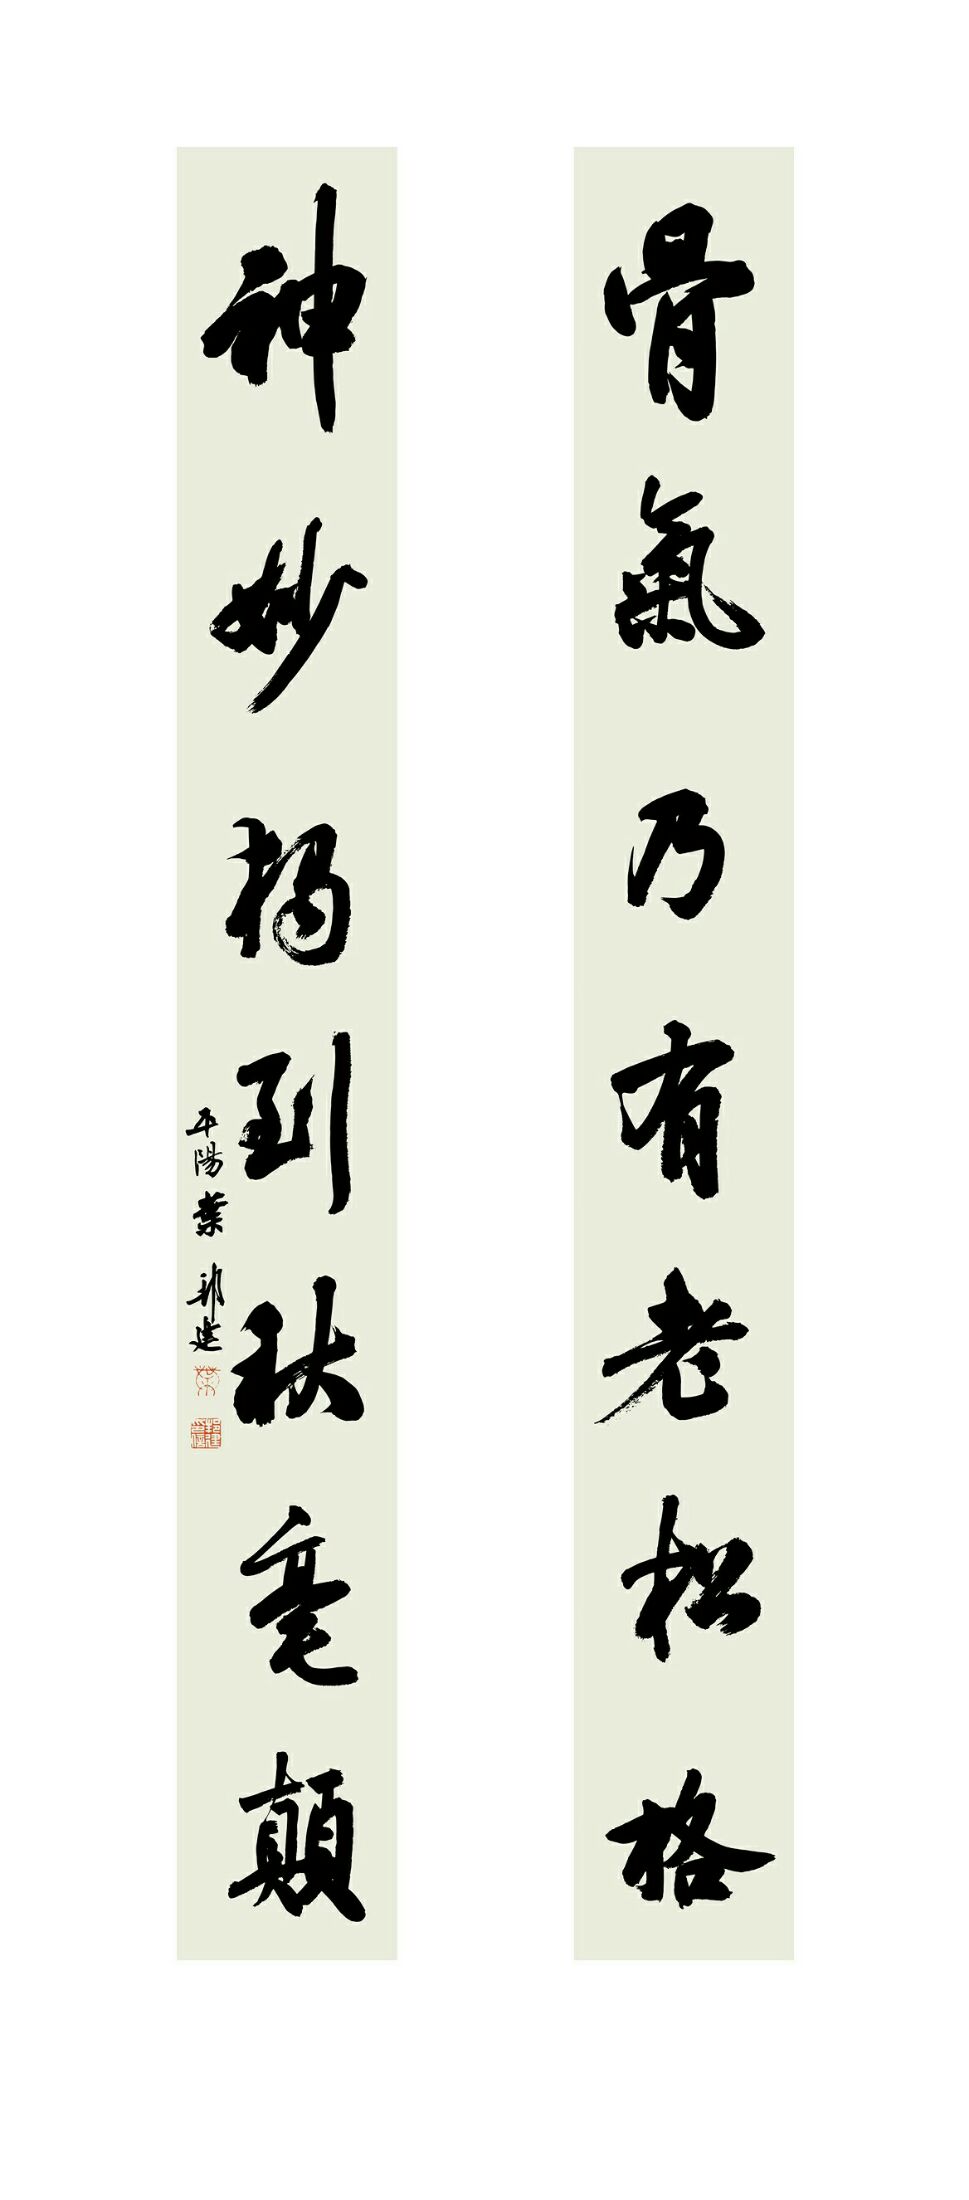 骨氣乃有老松格
神妙揭到秋毫顛
平陽葉邦建